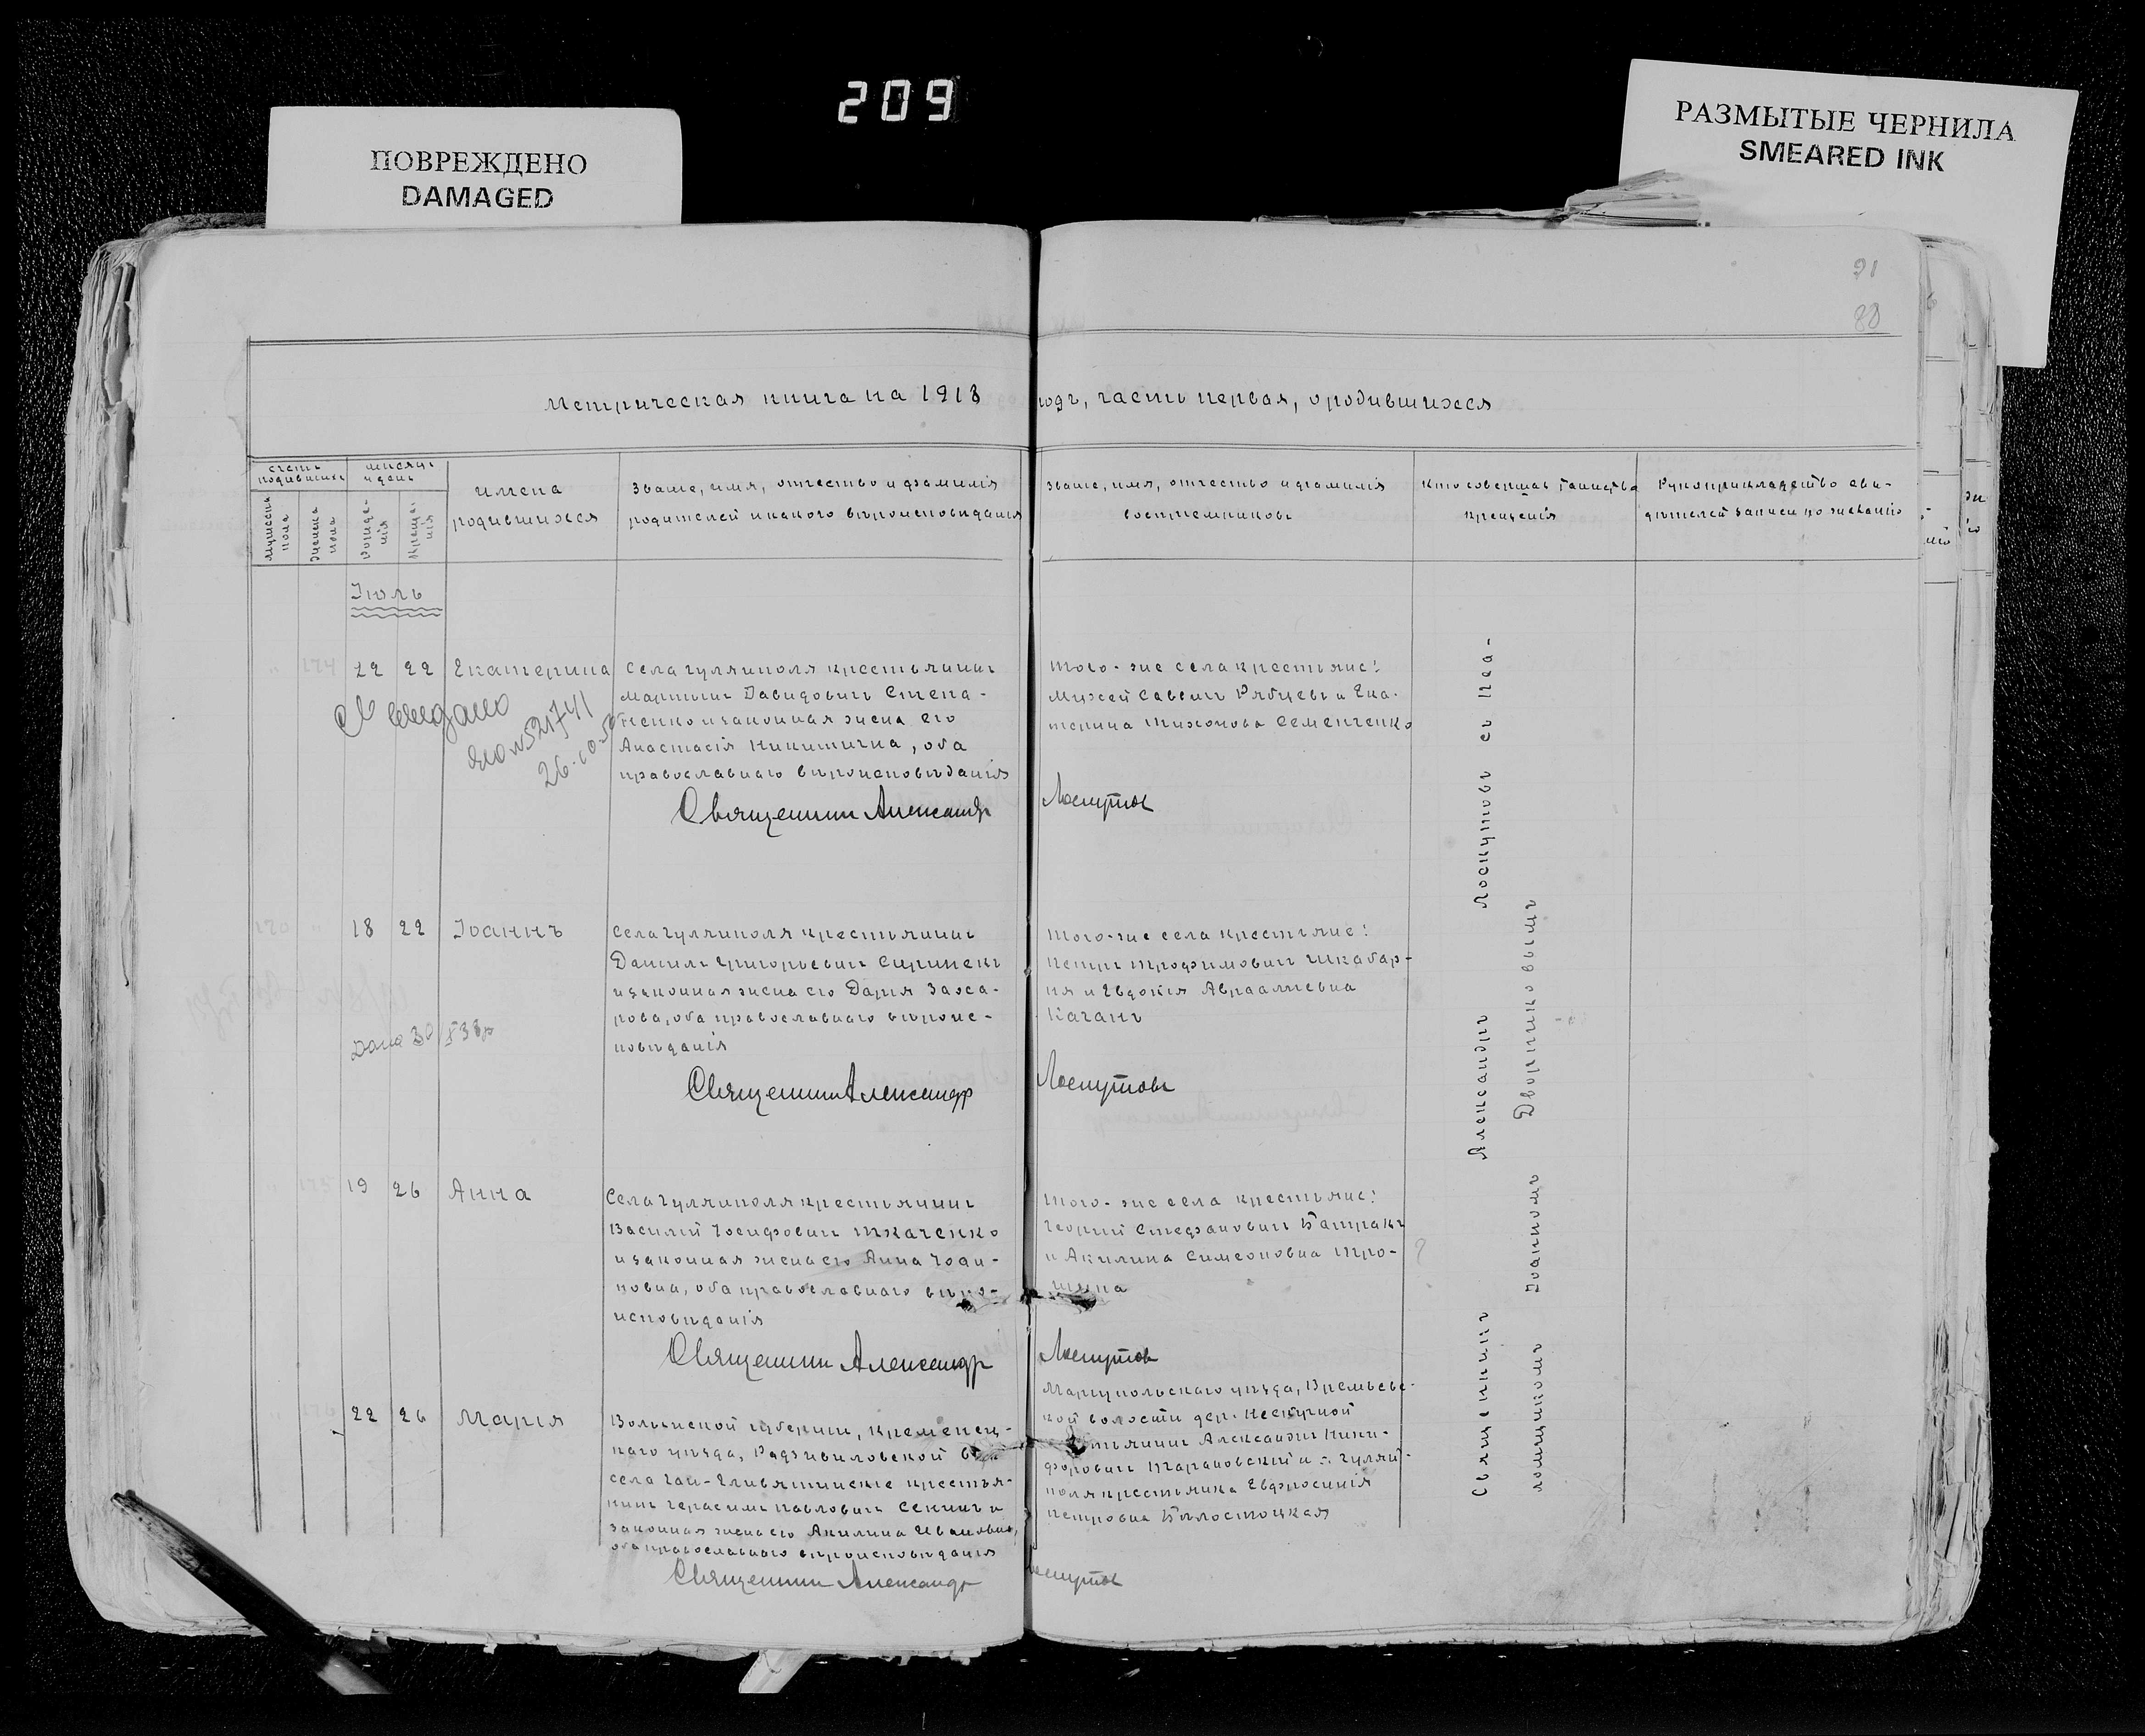 209
ПОВРЕЖДЕНО
DAMAGED
РАЗМЫТЫЕ ЧЕРНИЛА
SMEARED INK
91
88
Метрическая книга на 1918 годъ, часть первая, о родившихся
счетъ родившихся
мужеска пола
женска пола
мѣсяцъ и день
рожденія
крещенія
имена
родившихся
Званіе, имя, отчество и фамилія
родителей и какого вѣроисповѣданія
Званіе, имя, отчество и фамилія
воспріемниковъ
Кто совершалъ таинство
крещенія
Рукоприкладство сви-
дѣтелей записи по желанію
Іюль
" 174 22 22 Екатерина
Села Гуляйполя крестьянинъ
Мартинъ Давидовичъ Степа-
ненко и законная жена его
Анастасія Никитична, оба
православнаго вѣроисповѣданія
Священникъ Александръ Лоскутовъ
Того-же села крестьяне:
Мижей Саввичъ Рябцевъ и Ека-
терина Тихонова Семенченко
521741
26.
18 22 Іоаннъ
Села Гуляйполя крестьянинъ
Даніилъ Григорьевичъ Сиринекъ
и законная жена его Дарія Заха-
рова, оба православнаго вѣроис-
повѣданія
Священникъ Александръ Лоскутовъ
Того-же села крестьяне:
Петръ Трофимовичъ Шкабар-
ня и Евдокія Авраамiевна
Каганъ
" 175 19 26 Анна
Села Гуляйполя крестьянинъ
Василій Іосифовичъ Ткаченко
и законная жена его Анна Іоан-
новна, оба православнаго вѣро-
исповѣданія
Священникъ Александръ Лоскутовъ
Того-же села крестьяне:
Георгій Стефановичъ Батракъ
и Акилина Симеоновна Тро-
шина
22 26 Марія
Волынской губерніи, Кременец-
каго уѣзда, Радзивиловской
села Гаи-
крестья-
нинъ Герасимъ Павловичъ Секинъ и
законная жена его Акилина Ивановна,
оба православнаго вѣроисповѣданія
Священникъ Александръ Лоскутовъ
Маріупольскаго уѣзда, Времьевс-
кой волости дер. Нескучной
Александръ Ники-
форовичъ Тарановскій и с. Гуляй-
поля крестьянка Евфросинія
Петровна Бѣлостоцкая
Священникъ Александръ Лоскутовъ съ Пса-
ломщикомъ Іоанномъ Дворниковымъ